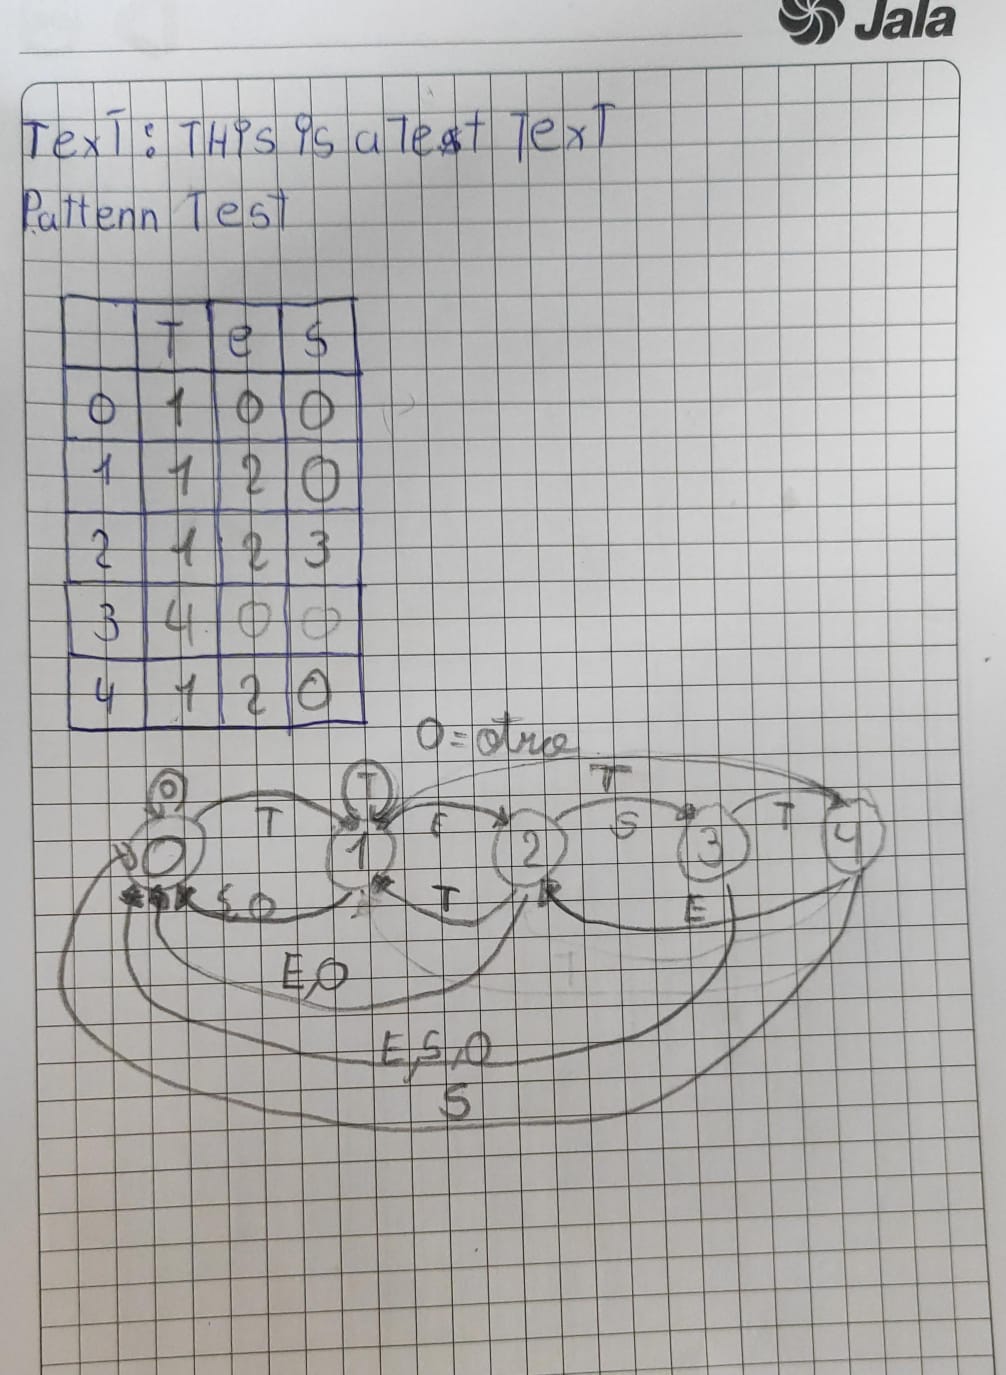 Jala
TexT: THis is a Test TexT
Pattenn Test
T e S
0 1 0 0
1 1 2 0
2 1 2 3
3 4 0 0
4 1 2 0
O = otro
T
O T T E S T
0 1 2 3 4
S,O T E
E,O T
E,S,O
S